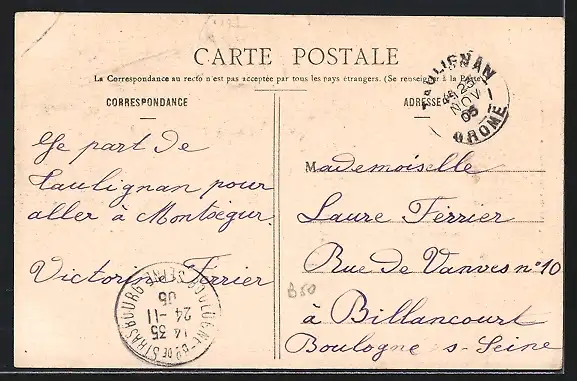 CARTE POSTALE
La Correspondance au recto n'est pas acceptée par tous les pays étrangers. (Se renseigner à la Poste)
CORRESPONDANCE
Je part de
Taulignan pour
aller à Montségur
Victorine Ferrier
ADRESSE
TAULIGNAN
23
NOV
05
DROME
Mademoiselle
Laure Ferrier
Rue de Vanves n° 10
à Billancourt
Boulogne s- Seine
B50
BOULOGNE - Bd DE STRASBOURG
SEINE
14 35
24 - 11
05